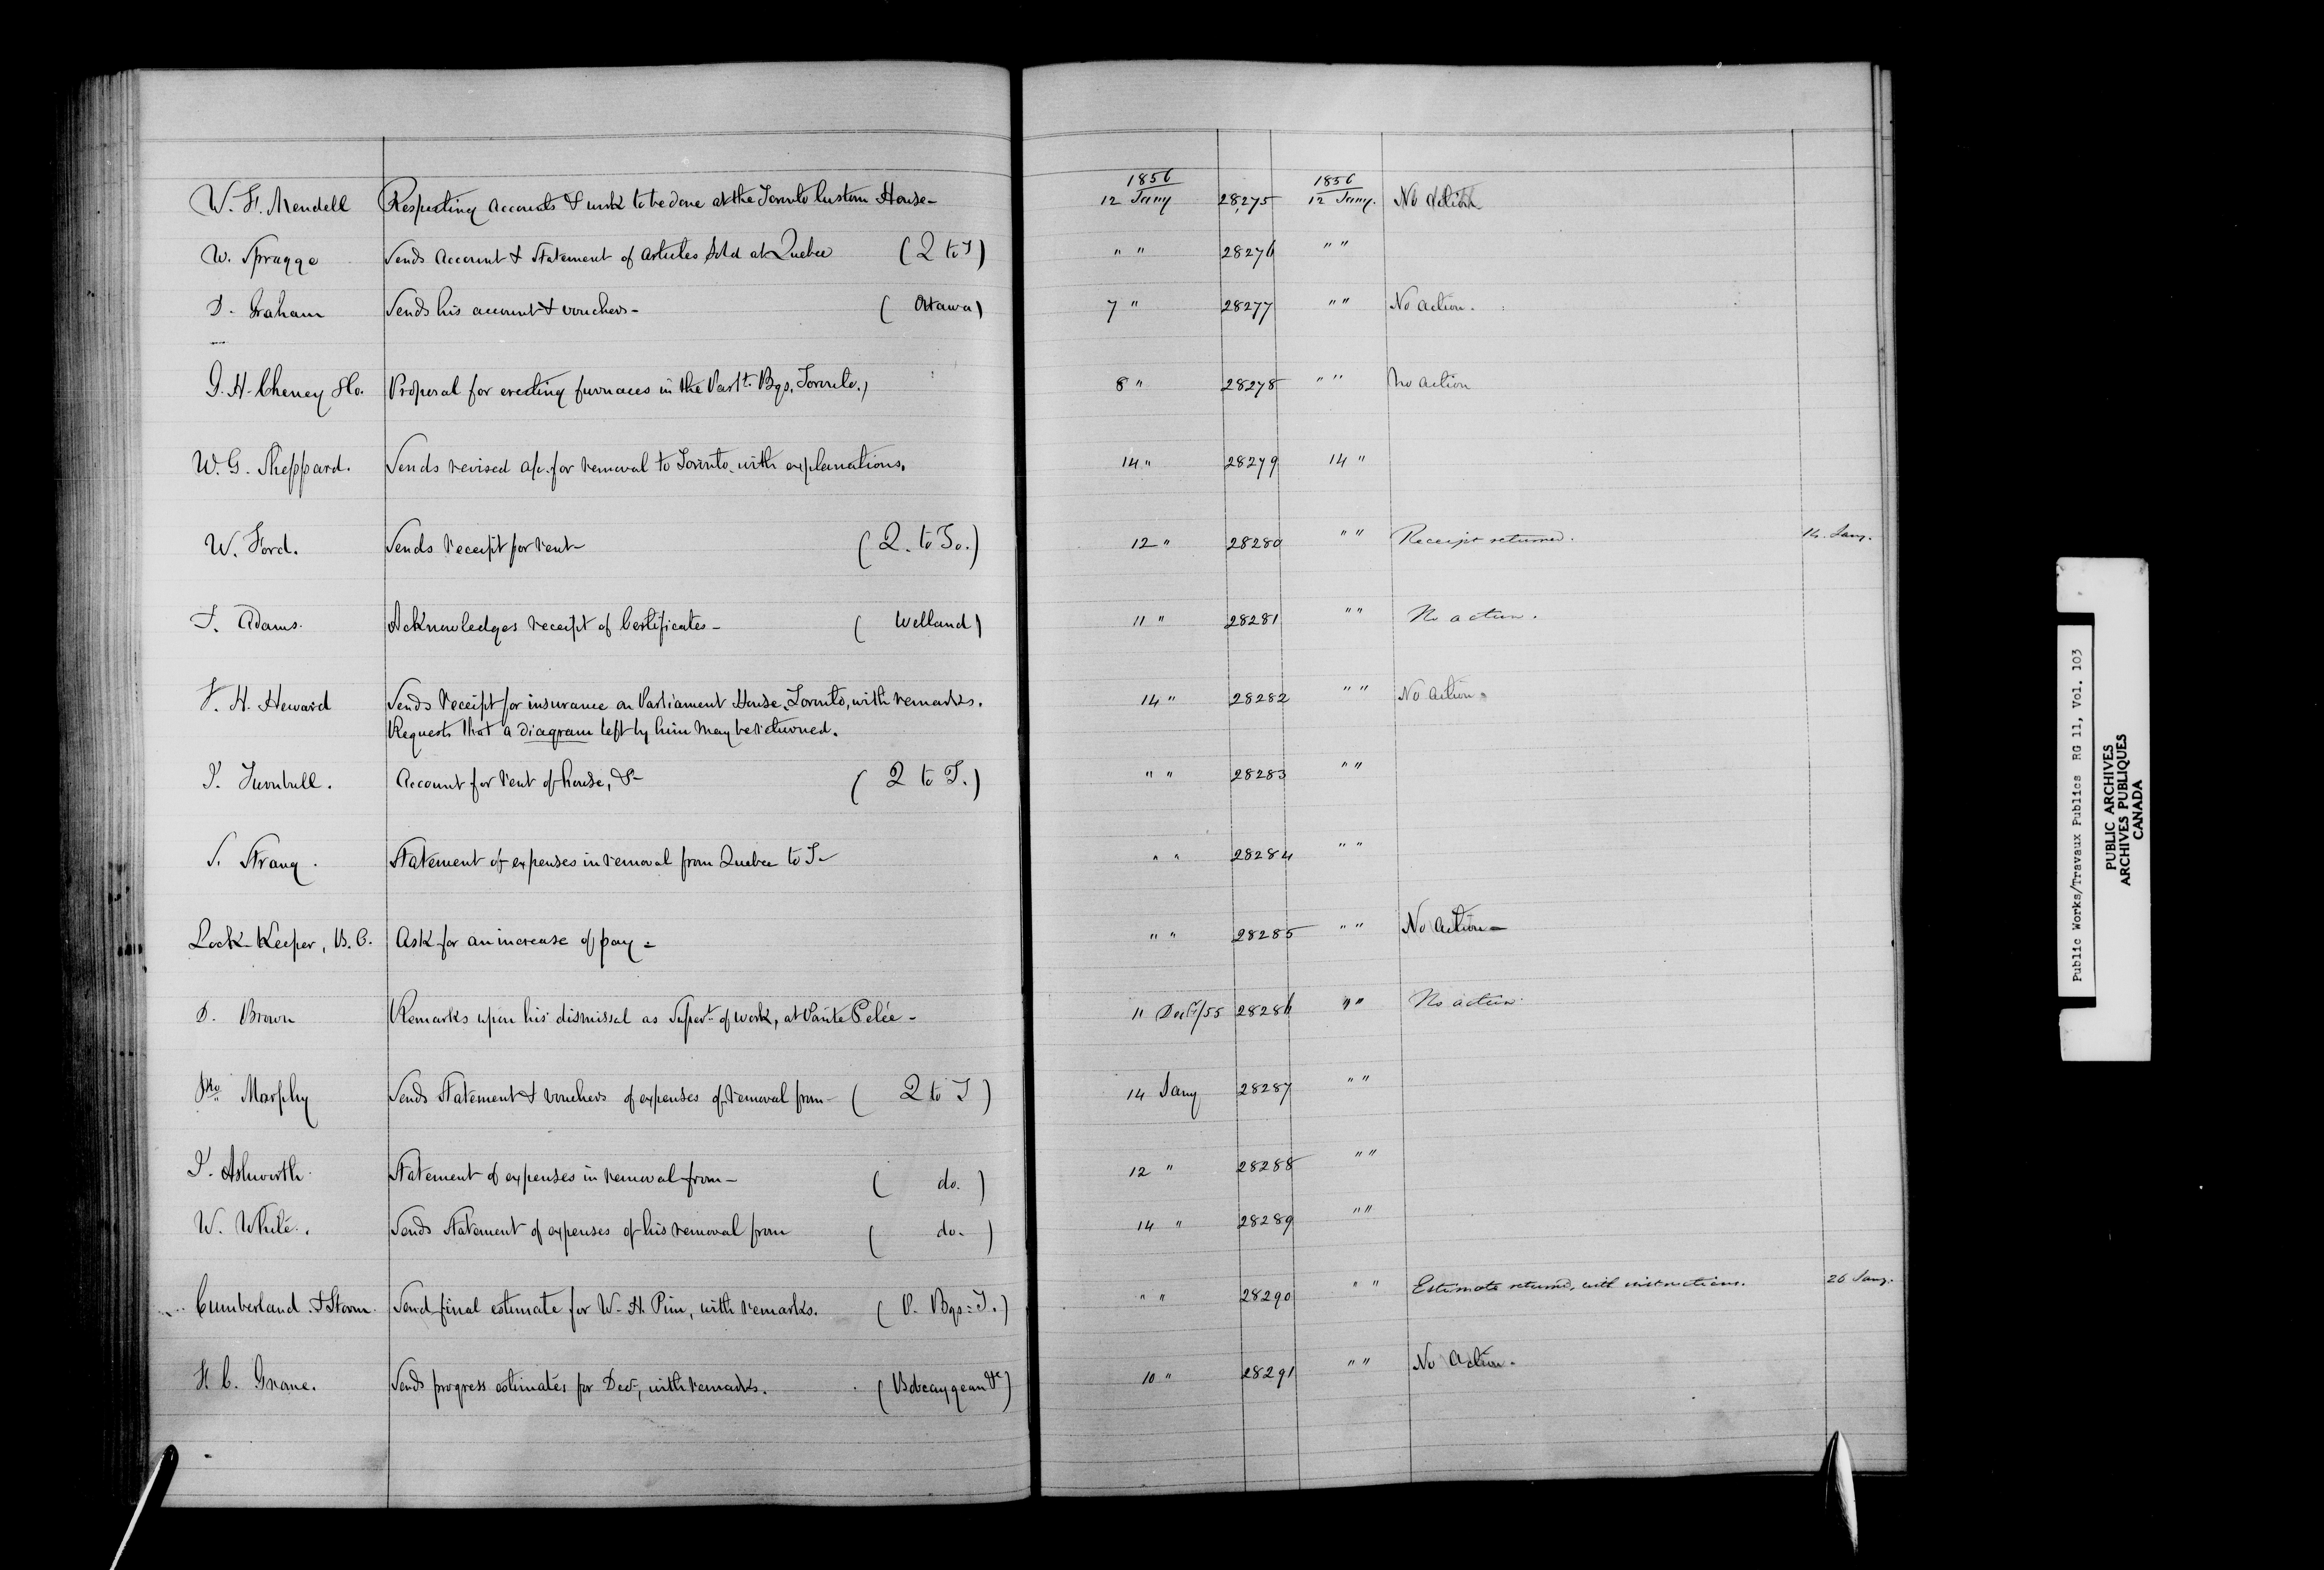 1856 1856
W. F. Mendell Respecting Accounts & work to be done at the Toronto Custom House - 12 Jany 28275 12 Jany. No Action
W. Spragge Sends Account & Statement of Articles Sold at Quebec (Q to T) " " 28276 " "
D. Graham Sends his account & vouchers - (Ottawa) 7 " 28277 " " No action.
G. H. Cheney & Co. Proposal for erecting furnaces in the Parlt. Bgs. Toronto. 8 " 28278 " " No action
W. G. Sheppard. Sends revised a/c. for removal to Toronto. with explanations. 14 " 28279 14 "
W. Ford. Sends receipt for rent - (Q. to To.) 12 " 28280 " " Receipt returned. 14. Jany.
T. Adams. Acknowledges receipt of Certificates - (Welland) 11 " 28281 " " No action.
F. H. Heward Sends receipt for insurance on Parliament House, Toronto, with remarks. 14 " 28282 " " No action.
Requests that a diagram left by him may be returned.
J. Turnbull. Account for rent of house, &- (Q to T.) " " 28283 " "
S. Strang. Statement of expenses in removal from Quebec to T- " " 28284 " "
Lock-Keeper, B. C. Ask for an increase of pay = " " 28285 " " No Action -
D. Brown Remarks upon his dismissal as Supert. of work, at Pointe Pelée - 11 Decr/55 28286 " " No action
Jno Morphy Sends Statement & vouchers of expenses of removal from - (Q to T) 14 Jany 28287 " "
J. Ashworth Statement of expenses in removal from - (do.) 12 " 28288 " "
W. White. Sends Statement of expenses of his removal from (do.) 14 " 28289 " "
Cumberland & Storm. Send final estimate for W. H. Pim, with remarks. (P. Bgs: T.) " " 28290 " " Estimate returned, with instructions. 26 Jany.
H. C. Grane. Sends progress estimates for Decr., with remarks. (Bobcaygean &c) 10 " 28291 " " No Action -
Public Works/Travaux Publics RG 11, Vol. 103
PUBLIC ARCHIVES
ARCHIVES PUBLIQUES
CANADA